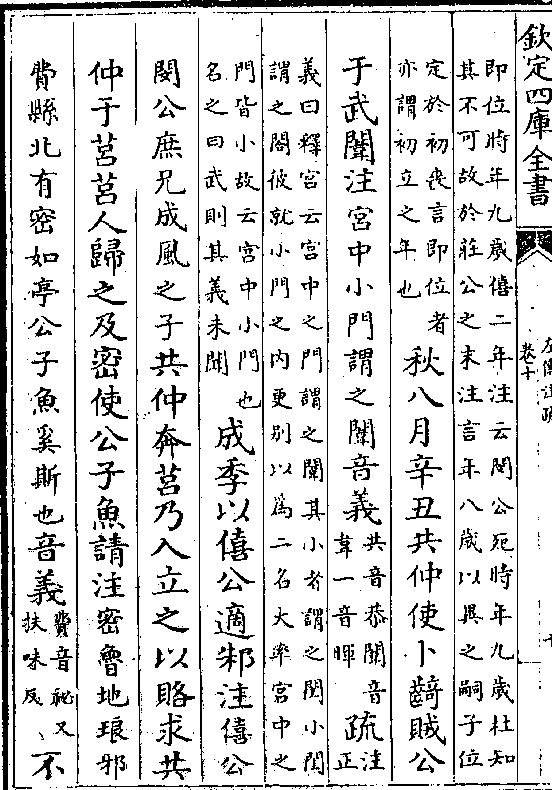 欽定四庫全書
卷十
即位時年九歲僖二年注云閔公死時年九歲杜知
其不可故於莊公之末注言年八歲以異之嗣子位
定於初喪言即位者
亦謂初立之年也
秋八月辛丑共仲使卜齮賊公
于武闈注宮中小門謂之闈音義
共音恭闈音
韋一音暉
疏
注
正
義曰釋宮云宮中之門謂之闈其小者謂之閨小閨
謂之閤彼就小門之內更別以為二名大率宮中之
門皆小故云宮中小門也
名之曰武則其義未聞
成季以僖公適邾注僖公
閔公庶兄成風之子共仲奔莒乃入立之以賂求共
仲于莒莒人歸之及密使公子魚請注密魯地琅邪
費縣北有密如亭公子魚奚斯也音義
費音祕又
扶味反
不